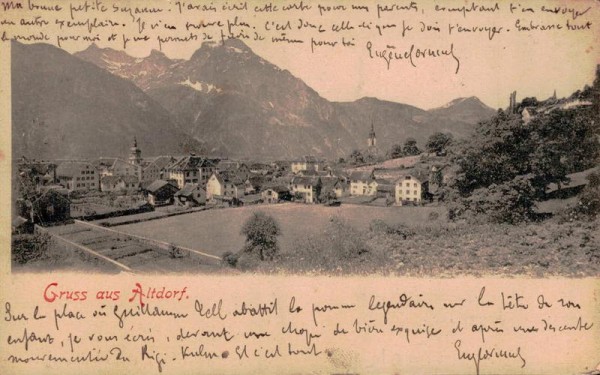 Ma bonne petite Suzanne. J'avais écrit cette carte pour mes parents, comptant t'en envoyer
un autre exemplaire. Je n'en trouve plus. C'est donc celle-ci que je dois t'envoyer. Embrasse tout
le monde pour moi et je me permets de faire de même pour toi
Eugène
Gruss aus Altdorf.
Sur la place où Guillaume Tell abattit la pomme légendaire sur la tête de son
enfant, je vous écris, devant une chope de bière exquise et après une descente
mouvementée du Rigi-Kulm. Et c'est tout.